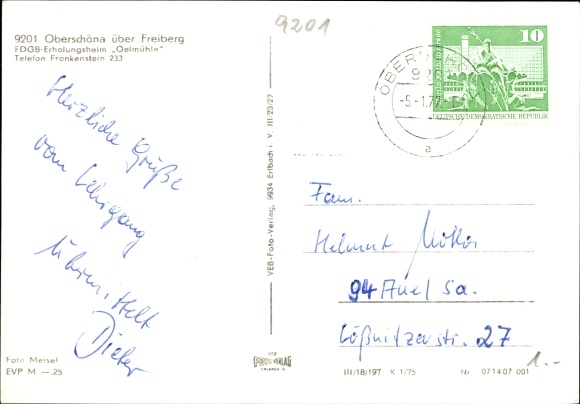 9201
9201 Oberschöna über Freiberg
FDGB-Erholungsheim „Oelmühle“
Telefon Frankenstein 233
Herzliche Grüße
vom Lehrgang
übermittelt
Dieter
Foto Meisel
EVP M —.25
VEB-Foto-Verlag, 9934 Erlbach i. V. III/23/27
FOTO-VERLAG
ERLBACH V.
10
DEUTSCHE DEMOKRATISCHE REPUBLIK
-5.-1.77
a
Fam.
Helmut
94 Aue/Sa.
Lößnitzerstr. 27
III/18/197 K 1/75 Nr. 071407 001
1.-